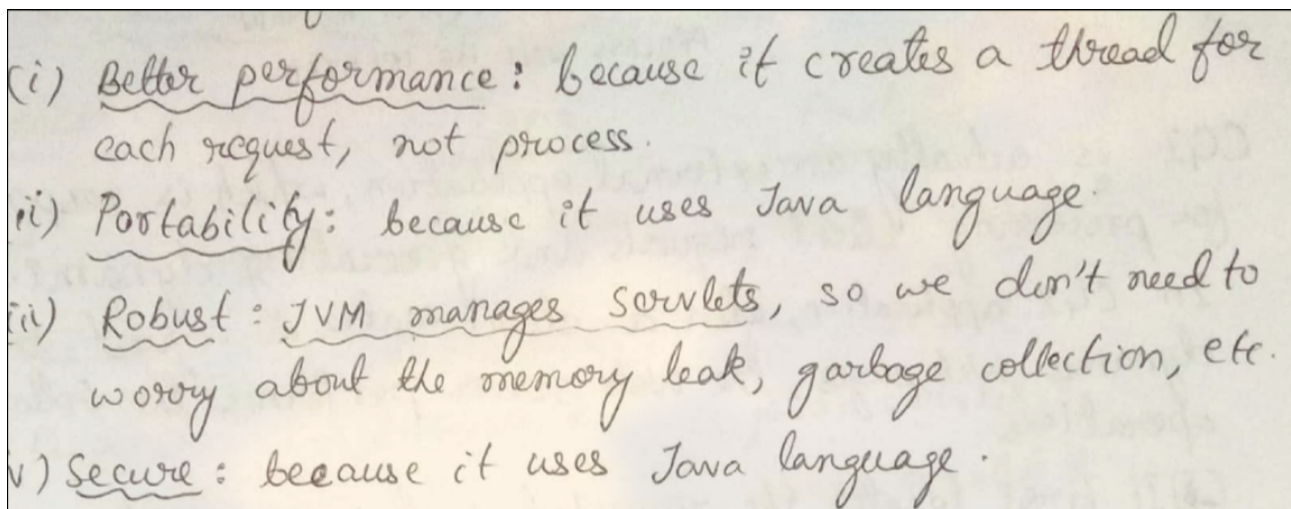 (i) Better performance: because it creates a thread for
each request, not process.
ii) Portability: because it uses Java language.
iii) Robust: JVM manages servlets, so we don't need to
worry about the memory leak, garbage collection, etc.
v) Secure: because it uses Java language.